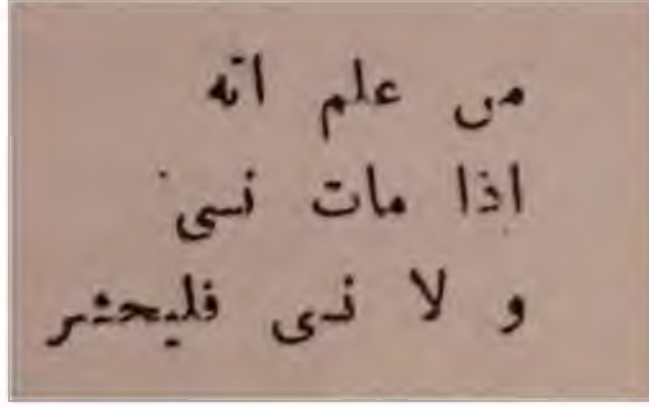 من علم انه
اذا مات نسى
و لا نسى فليحشر